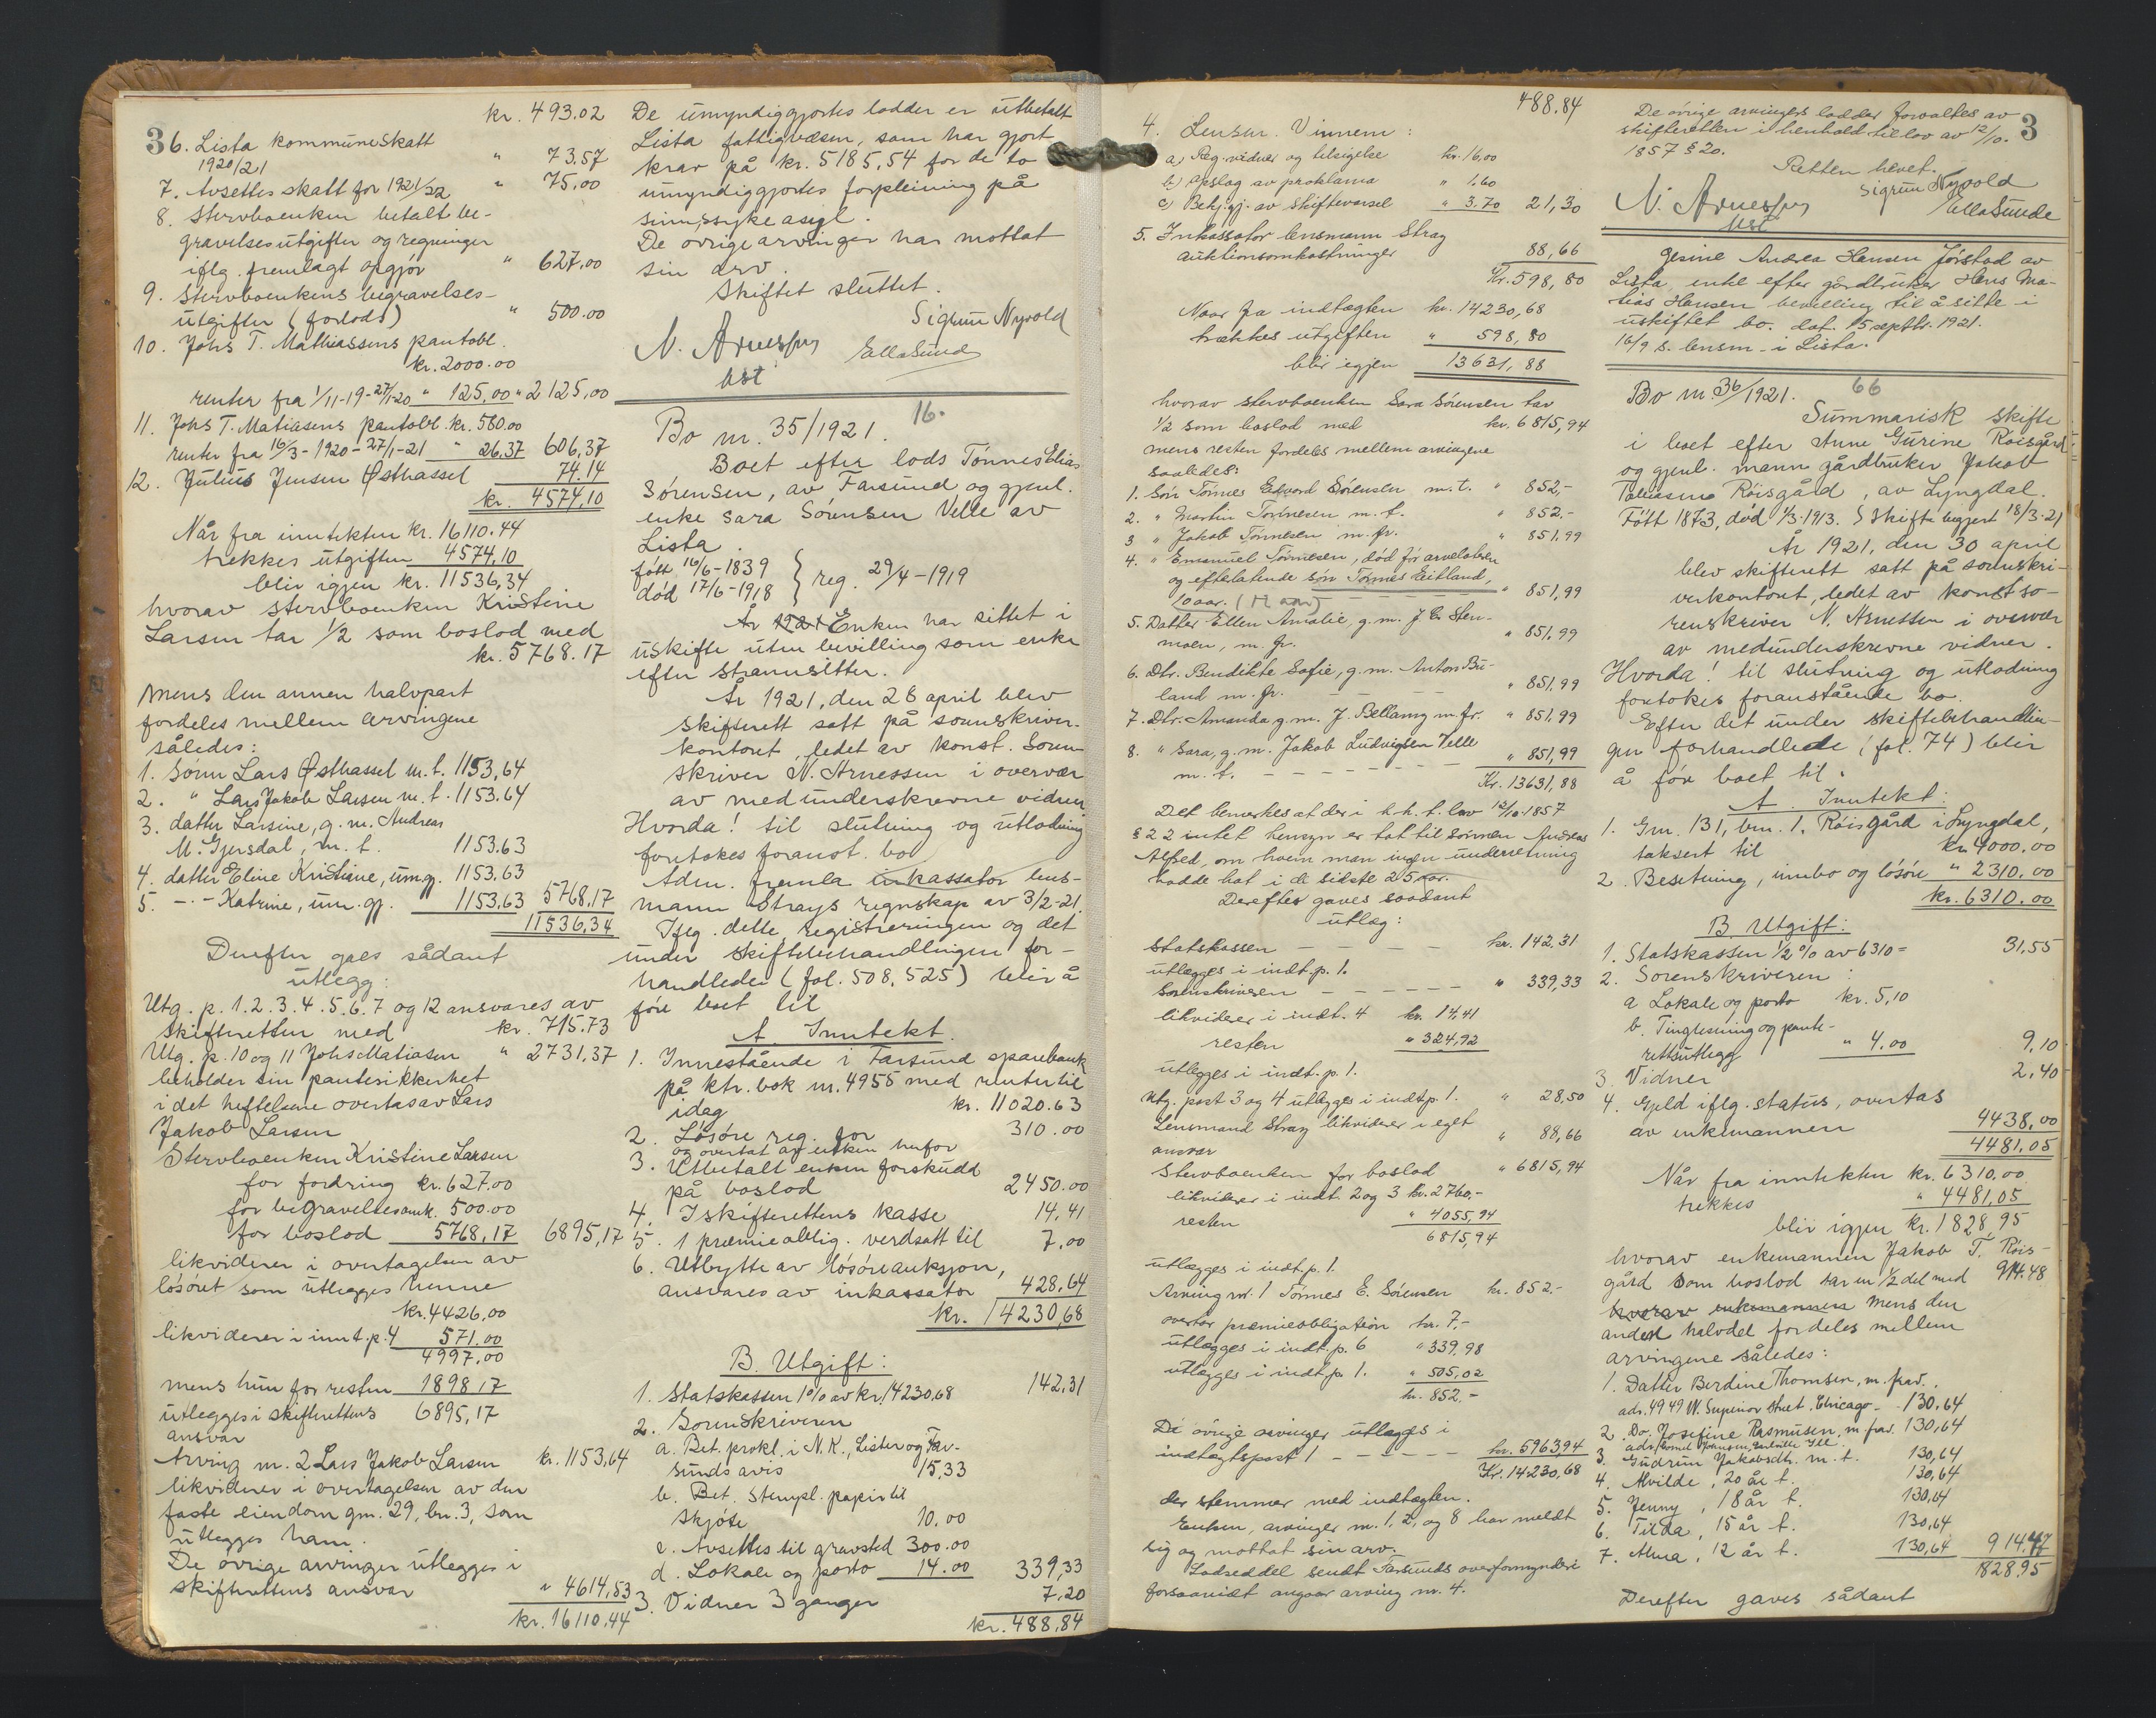 3
kr. 493.02
6. Lista kommuneskatt
1920/21 " 73.57
7. Avsettes skatt for 1921/22 " 75,00
8. Stervboenken betalt be-
gravelsesutgifter og regninger
iflg. fremlagt opgjør " 627,00
9. Stervboenkens begravelses-
utgifter (forlods) " 500.00
10. Johs T. Mathiassens pantobl.
kr. 2000.00
renter fra 1/11-19-27/1-20 " 125,00 " 2125,00
11. Johs T. Matiasens pantobl. kr. 580.00
renter fra 16/3-1920-27/1-21 " 26,37 606,37
12. Julius Jensen Østhassel 74.14
kr. 4574,10
Når fra inntekten kr. 16110.44
trekkes utgiften 4574,10
blir igjen kr. 11536,34
hvorav stervboenken Kristine
Larsen tar 1/2 som boslod med
kr. 5768.17
mens den annen halvpart
fordeles mellem arvingene
således:
1. Sønn Lars Østhassel m.t. 1153,64
2. " Lars Jakob Larsen m.t. 1153.64
3. datter Larsine, g.m. Andreas
M. Gjersdal, m.t. 1153.63
4. datter Eline Kristine, um.gj. 1153.63
5. -"- Katrine, um.gj. 1153.63 5768,17
11536,34
Derefter gaes sådant
utlegg:
Utg. p. 1.2.3.4.5.6.7 og 12 ansvares av
skifteretten med kr. 715.73
Utg. p. 10 og 11 Johs Matiasen " 2731,37
beholder sin pantesikkerhet
i det heftelsene overtas av Lars
Jakob Larsen
Stervboenken Kristine Larsen
for fordring kr. 627.00
for begravelsesomk. 500.00
for boslod 5768,17 6895,17
likviderer i overtagelsen av
løsøret som utlegges henne
kr. 4426,00
likviderer i innt. p. 4 571.00
4997,00
mens hun for resten 1898,17
utlegges i skifterettens 6895,17
ansvar
Arving nr. 2 Lars Jakob Larsen kr. 1153,64
likviderer i overtagelsen av den
faste eiendom gnr. 29, bn. 3, som
utlegges ham.
De øvrige arvinger utlegges i
skifterettens ansvar " 4614,53
kr. 16110,44
De umyndiggjortes lodder er utbetalt
Lista fattigvæsen, som har gjort
krav på kr. 5185,54 for de to
umyndiggjortes forpleining på
sinnssykeasyl.
De øvrige arvinger har mottat
sin arv.
Skiftet sluttet.
Sigrun Nyvold
N. Arnessen Ella Sunde
kst
Bo nr. 35/1921. 16.
Boet efter lods Tønnes Elias
Sørensen, av Farsund og gjenl.
enke Sara Sørensen Velle av
Lista.
født 16/6-1839
død 17/6-1918 } reg. 29/4-1919
År 1921 Enken har sittet i
uskifte uten bevilling som enke
efter strannsitter.
År 1921, den 28 april blev
skifterett satt på sorenskriver-
kontoret, ledet av konst. Soren
skriver N. Arnessen i overvær
av medunderskrevne vidner
Hvorda! til slutning og utlodning
foretokes foranst. bo
Adm. fremla inkassator lens-
mann Strays regnskap av 3/2-21.
Iflg. dette, registreringen og det
under skiftebehandlingen for-
handlede (fol. 508, 525) blir å
føre boet til
A. Inntekt.
1. Innestående i Farsund sparebank
på ktr. bok nr. 4958 med renter til
idag kr. 11020.63
2. Løsøre reg. for 310.00
og overtat av enken herfor
3. Utbetalt enken forskudd
på boslod 2450.00
4. I skifterettens kasse 14,41
5. 1 premieoblig. verdsatt til 7,00
6. Utbytte av løsøreauksjon,
ansvares av inkassator 428,64
kr. 14230,68
B. Utgift:
1. Statskassen 1% av kr. 14230,68 142,31
2. Sorenskriveren
a. Bet. prokl. i N.K., Lister og Far-
sunds avis 15,33
b. Bet. stempl. papir til
skjøte 10.00
c. Avsettes til gravsted 300.00
d. Lokale og porto 14.00 339,33
3. Vidner 3 ganger 7,20
kr. 488,84
488.84
4. Lensm. Vinnem:
a) Reg. vidner og tilsigelse kr. 16,00
b) Opslag av proklama " 1,60
c) Bekj.gj. av skiftevarsel " 3.70 21,30
5. Inkassator lensmann Stray
auktionsomkostninger 88,66
Kr. 598,80
Naar fra indtægten kr. 14230,68
trækkes utgiften " 598,80
blir igjen 13631,88
hvorav stervboenken Sara Sørensen tar
1/2 som boslod med kr. 6815,94
mens resten fordeles mellem arvingene
saaledes:
1. Søn Tønnes Edvard Sørensen m.t. " 852,-
2. " Martin Tønnesen m.t. " 852.-
3 " Jakob Tønnesen m. fr. " 851,99
4. " Emanuel Tønnesen, død før arveladeren
og efterlatende søn Tønnes Eitland,
10 aar. (12 aar) " 851,99
5. Datter Ellen Amalie, g.m. J. E. Sten-
moen, m. fr. " 851,99
6. Dtr. Bendikte Sofie, g.m. Anton Bu-
land m. fr. " 851,99
7. Dtr. Amanda g.m. J. Bellamy m. fr. " 851,99
8. " Sara, g.m. Jakob Ludvigsen Velle
m.t. " 851,99
Kr. 13631,88
Det bemerkes at der i h.h.t. lov 12/10-1857
§ 22 intet hensyn er tat til sønnen Andreas
Alfred, om hvem man ingen underretning
hadde hat i de sidste 25 aar.
Derefter gaves saadant
utlæg:
Statskassen kr. 142,31
utlægges i indt. p. 1.
Sorenskriveren " 339,33
likviderer i indt. 4 kr. 14,41
resten " 324,92
utlægges i indt. p. 1.
Utg. post 3 og 4 utlægges i indt. p. 1. " 28,50
Lensmand Stray likviderer i eget " 88,66
ansvar
Stervboenken for boslod " 6815,94
likviderer i indt. 2 og 3 kr. 2760,-
resten " 4055,94
6815,94
utlægges i indt. p. 1.
Arving nr. 1 Tønnes E. Sørensen kr. 852.-
overtar præmieobligation kr. 7,-
utlægges i indt. p. 6 " 339,98
utlægges i indt. p. 1. " 505,02
kr. 852,-
De øvrige arvinger utlægges i
indtægtspost 1 kr. 5963,94
Kr. 14230,68
der stemmer med indtægten.
Enken, arvinger nr. 1, 2, og 8 har meldt
sig og mottat sin arv.
Lodseddel sendt Farsunds overformynderi
forsaavidt angaar arving nr. 4.
3
De øvrige arvingers lodder forvaltes av
skifteretten i henhold til lov av 12/10.
1857 § 20.
Retten hevet.
Sigrun Nyvold
N. Arnessen Ella Sunde
kst
Gesine Andrea Hansen Jørstad av
Lista, enke efter gårdbruker Hans Ma-
tias Hansen bevilling til å sitte i
uskiftet bo. dat. 15 septbr. 1921.
16/9 s. lensm. i Lista.
Bo nr. 36/1921. 66
Summarisk skifte
i boet efter Anne Gurine Røisgård
og gjenl. mann gårdbruker Jakob
Tobiassen Røisgård, av Lyngdal.
Født 1873, død 1/3-1913. Skifte begjert 18/3-21
År 1921, den 30 april
blev skifterett satt på sorenskri-
verkontoret, ledet av konst so-
renskriver N. Arnessen i overvær
av medunderskrevne vidner.
Hvorda! til slutning og utlodning
foretokes foranstående bo
Efter det under skiftebehandlin-
gen forhandlede (fol. 74) blir
å føre boet til.
A. Inntekt:
1. Gnr. 131, bnr. 1, Røisgård i Lyngdal,
taksert til kr. 4000.00
2. Besetning, innbo og løsøre " 2310.00
kr. 6310.00
B. Utgift:
1. Statskassen 1/2% av 6310= 31,55
2. Sorenskriveren:
a Lokale og porto kr. 5,10
b. Tinglesning og pante-
rettsutlegg " 4.00 9,10
3 Vidner 2,40
4. Gjeld iflg. status, overtas
av enkemannen 4438,00
4481,05
Når fra inntekten kr. 6310,00
trekkes " 4481,05
blir igjen kr. 1828,95
hvorav enkemannen Jakob T. Røis-
gård som boslod tar en 1/2 del med 914.48
hvorav enkemannen mens den
andel halvdel fordeles mellem
arvingene således:
1. Datter Berdine Thomsen, m. frav.
adr. 4949 W. Superior Street, Chicago - 130,64
2. Do. Josefine Rasmusen, m frav. 130,64
3. Gudrun Jakobsdtr. m.t. 130,64
4. Alvilde, 20 år t. 130,64
5. Jenny, 18 år t. 130,64
6. Tilda, 15 år t. 130,64
7. Alma, 12 år t. 130,64 914.47
1828,95
Derefter gaves sådant